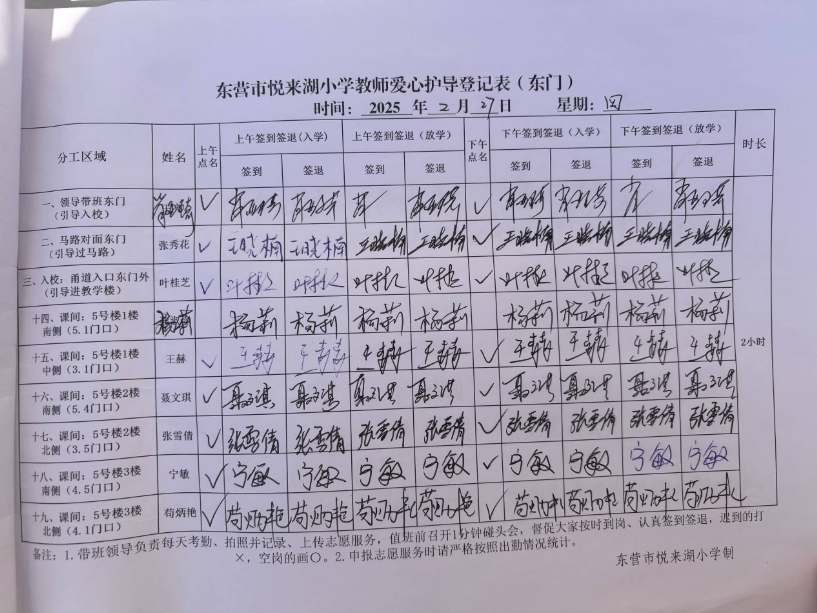 东营市悦来湖小学教师爱心护导登记表（东门）
时间： 2025 年 2 月 27 日 星期：四
分工区域 姓名 上午点名 上午签到签退（入学） 上午签到签退（放学） 下午点名 下午签到签退（入学） 下午签到签退（放学） 时长
签到 签退 签到 签退 签到 签退 签到 签退
一、领导带班东门 ✓ ✓
（引导入校）
二、马路对面东门 张秀花 ✓ 王晓楠 王晓楠 王晓楠 王晓楠 ✓ 王晓楠 王晓楠 王晓楠 王晓楠
（引导过马路）
三、入校：甬道入口东门外 叶桂芝 ✓ 叶桂芝 叶桂芝 叶桂芝 叶桂芝 ✓ 叶桂芝 叶桂芝 叶桂芝 叶桂芝
（引导进教学楼）
十四、课间：5号楼1楼 杨莉 杨莉 杨莉 杨莉 杨莉 杨莉 杨莉 杨莉 杨莉
南侧（5.1门口）
十五、课间：5号楼1楼 王赫 ✓ 王赫 王赫 王赫 王赫 ✓ 王赫 王赫 王赫 王赫 2小时
中侧（3.1门口）
十六、课间：5号楼2楼 聂文琪 ✓ 聂文琪 聂文琪 聂文琪 聂文琪 ✓ 聂文琪 聂文琪 聂文琪 聂文琪
南侧（5.4门口）
十七、课间：5号楼2楼 张雪倩 ✓ 张雪倩 张雪倩 张雪倩 张雪倩 ✓ 张雪倩 张雪倩 张雪倩 张雪倩
北侧（3.5门口）
十八、课间：5号楼3楼 宁敏 ✓ 宁敏 宁敏 宁敏 宁敏 ✓ 宁敏 宁敏 宁敏 宁敏
南侧（4.5门口）
十九、课间：5号楼3楼 苟炳艳 ✓ 苟炳艳 苟炳艳 苟炳艳 苟炳艳 ✓ 苟炳艳 苟炳艳 苟炳艳 苟炳艳
北侧（4.1门口）
备注：1.带班领导负责每天考勤、拍照并记录、上传志愿服务，值班前召开1分钟碰头会，督促大家按时到岗、认真签到签退，迟到的打
×，空岗的画〇。2.申报志愿服务时请严格按照出勤情况统计。
东营市悦来湖小学制